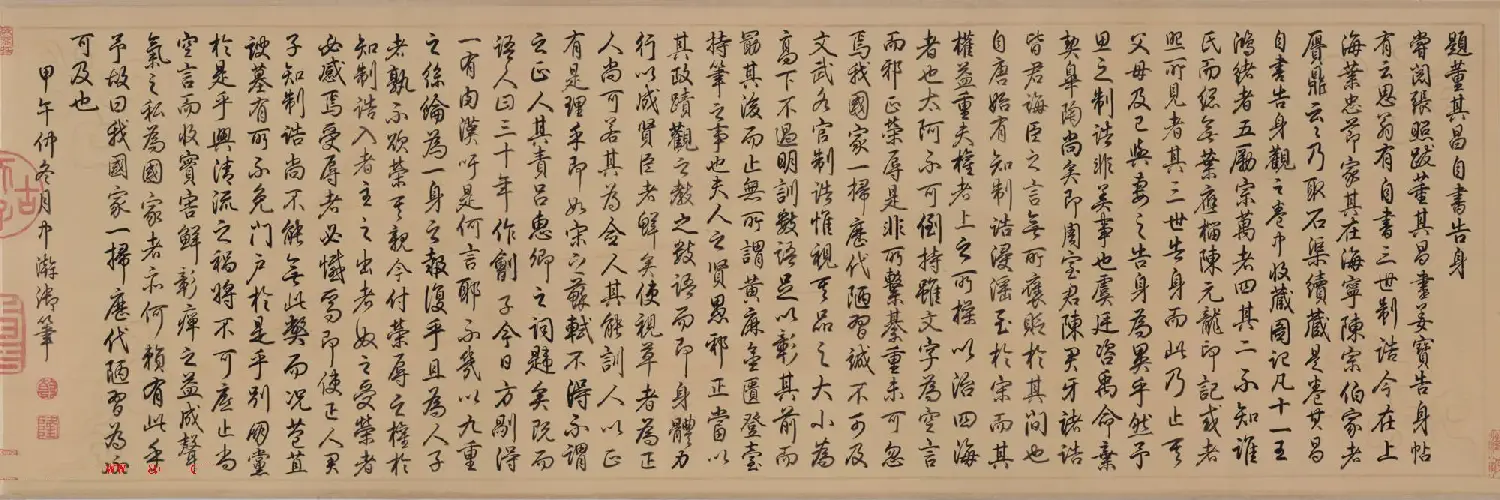 題董其昌自書告身
嘗閱張照跋董其昌書姜寶告身帖
有云思翁有自書三世制誥今在上
海葉忠節家其在海寧陳宗伯家者
贋鼎云云乃取石渠續藏是卷其昌
自書告身觀之卷中收藏圖記凡十一王
鴻緒者五勵宗萬者四其二不知誰
氏而總無葉應榴陳元龍印記或者
照所見者其三世告身而此乃止其
父母及己與妻之告身為異乎然予
思之制誥非美事也虞廷咨禹命棄
契皋陶尚矣即周室君陳君牙諸誥
皆君誨臣之言無所褒貶於其間也
自唐始有知制誥濅淫至於宋而其
權益重夫權者上之所操以治四海
者也太阿不可倒持雖文字為空言
而邪正榮辱是非所繫綦重未可忽
焉我國家一掃歷代陋習誠不可及
文武各官制誥惟視其品之大小為
高下不過明訓數語足以彰其前而
勗其後而止無所謂黃麻金匱登臺
持筆之事也夫人之賢愚邪正當以
其政蹟觀之教之數語而即身體力
行以成賢臣者鮮矣使視草者為正
人尚可若其為僉人其能訓人以正
有是理乎即如宋之蘇軾不得不謂
之正人其責呂惠卿之詞韙矣既而
語人曰三十年作劊子今日方剮得
一有肉漢吁是何言耶不幾以九重
之絲綸為一身之報復乎且為人子
者孰不欲榮其親今付榮辱之權於
知制誥入者主之出者奴之受榮者
必感焉受辱者必憾焉即使正人君
子知制誥尚不能無此弊而況苞苴
諛墓有所不免門戶於是乎別朋黨
於是乎興清流之禍將不可底止尚
空言而收實害鮮彰癉之益成聲
氣之私為國家者亦何賴有此乎
予故曰我國家一掃歷代陋習為不
可及也
甲午仲冬月中澣御筆